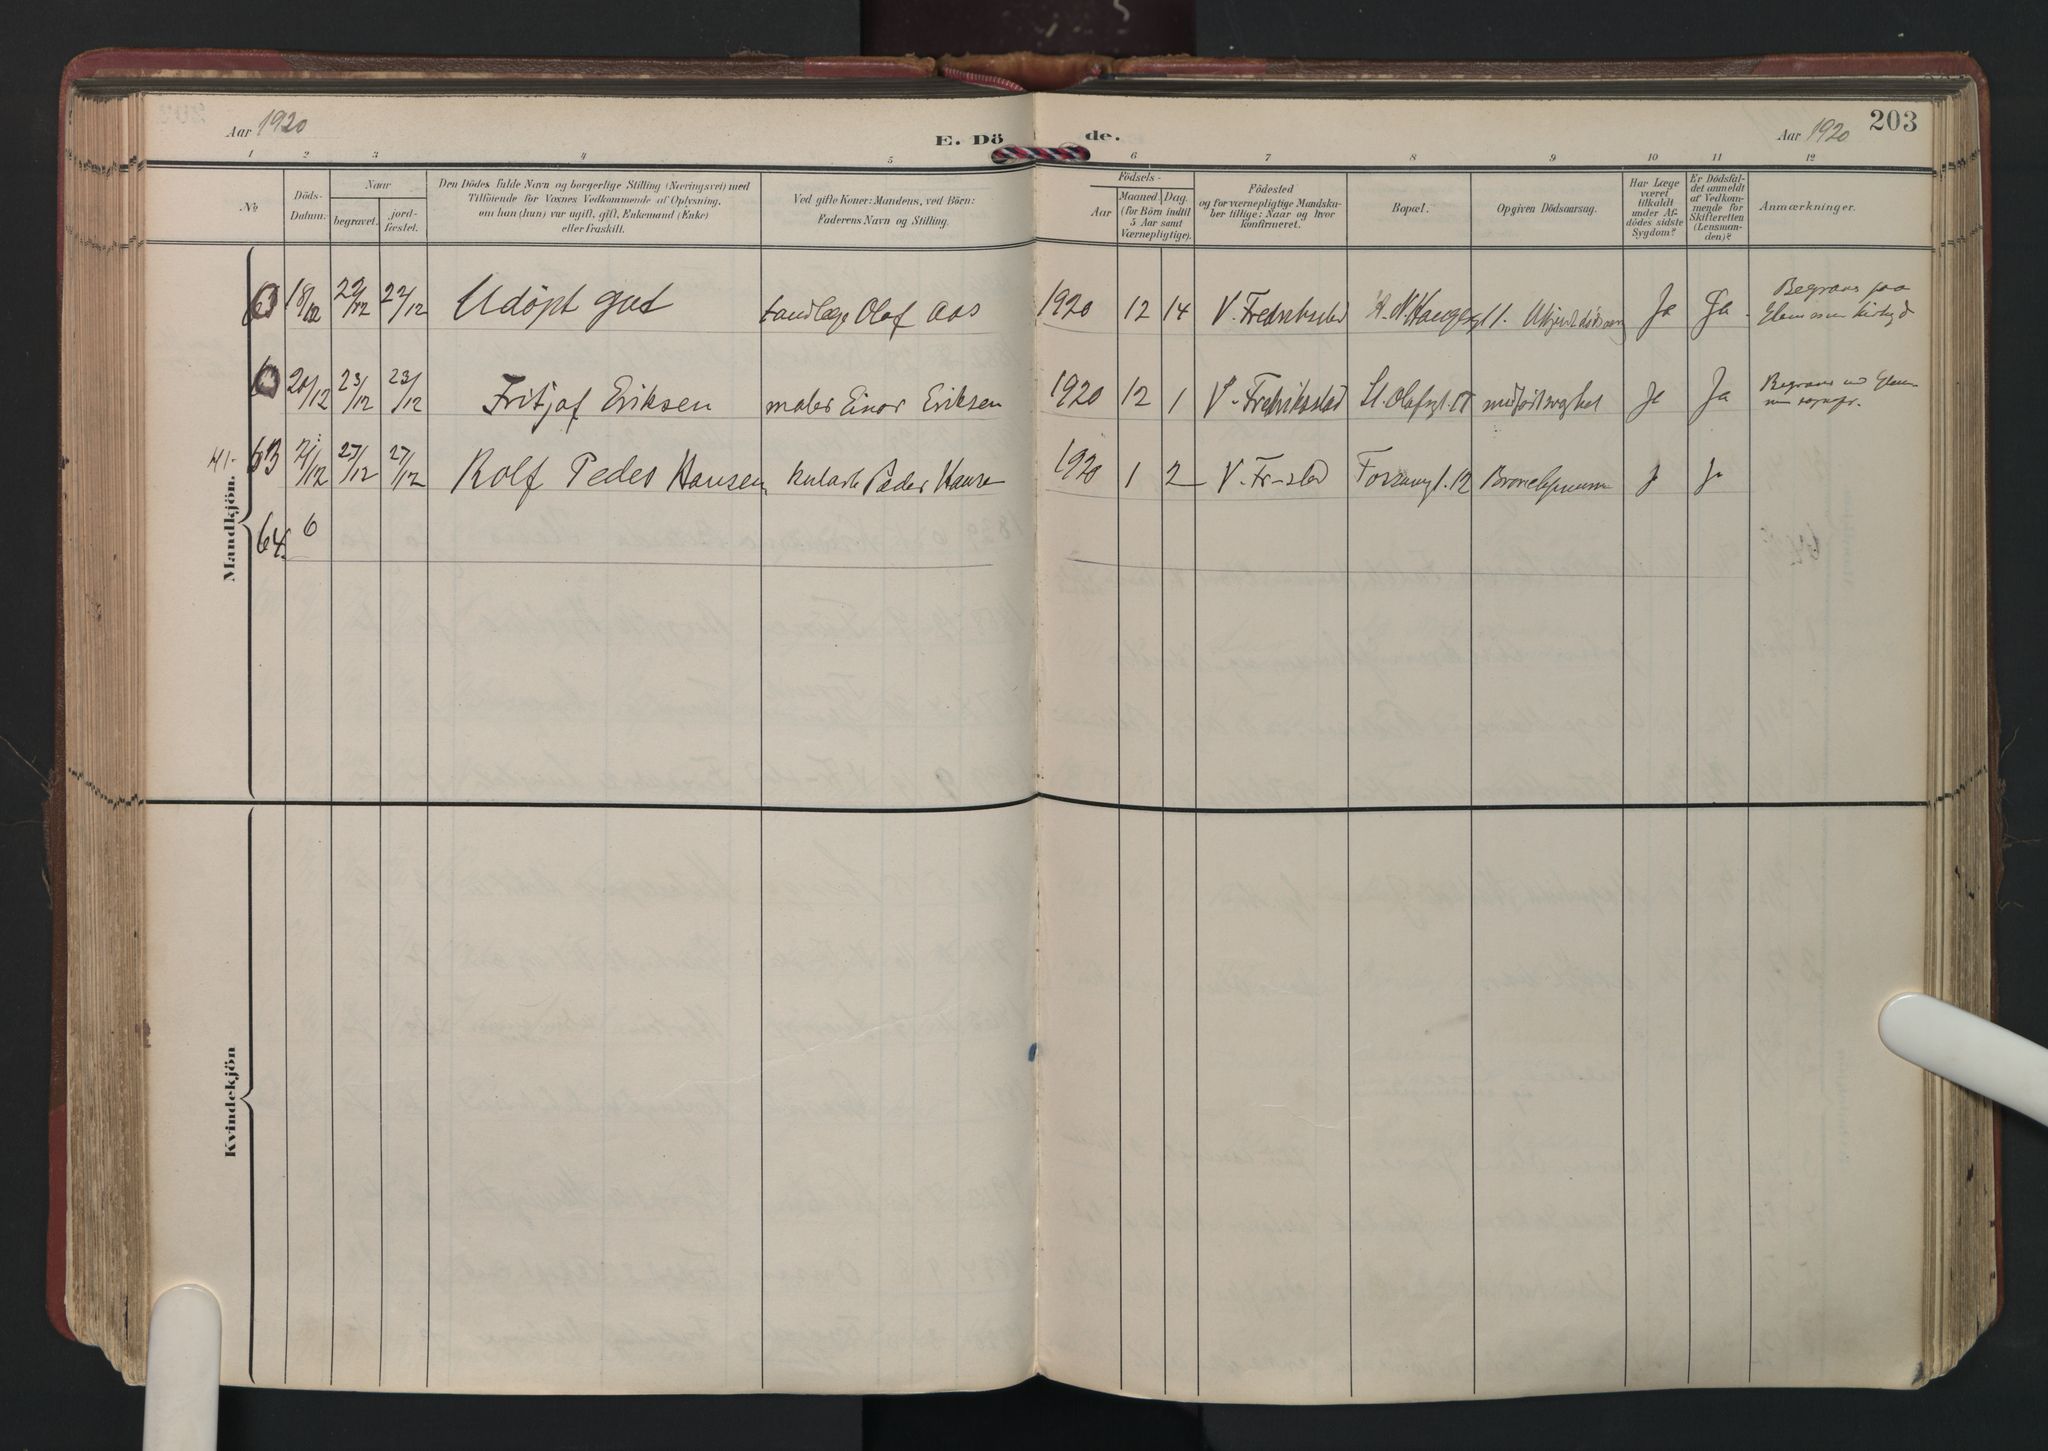 Aar 1920
E. Dö
de.
Aar 1920
203
1 2 3 4 5 6 7 8 9 10 11 12
No
Döds-
Datum.
Naar
begravet.
jord-
fæstet.
Den Dödes fulde Navn og borgerlige Stilling (Næringsvei) med
Tilföiende for Voxnes Vedkommende af Oplysning,
om han (hun) var ugift, gift, Enkemand (Enke)
eller fraskilt.
Ved gifte Koner: Mandens, ved Börn:
Faderens Navn og Stilling.
Födsels-
Aar
Maaned. Dag.
(for Börn indtil
5 Aar samt
Værnepligtige).
Födested
og for værnepligtige Mandska-
ber tillige: Naar og hvor
konfirmeret.
Bopæl.
Opgiven Dödsaarsag.
Har Læge
været
tilkaldt
under Af-
dödes sidste
Sygdom?
Er Dödsfal-
det anmeldt
af Vedkom-
mende for
Skifteretten
(Lensman-
den)?
Anmærkninger.
Mandkjön.
18/12 22/12 22/12 Udöpt gut tandlæge Olaf Aas 1920 12 14 V. Fredrikstad Ja Ja Begravs paa
20/12 23/12 23/12 Fritjof Eriksen maler Einar Eriksen 1920 12 1 V. Fredrikstad St. Olafsgt. Ja Ja
63 21/12 27/12 27/12 Rolf Peder Hansen Peder Hansen 1920 1 2 V. Fr-stad 12 J Ja
64. 6
Kvindekjön